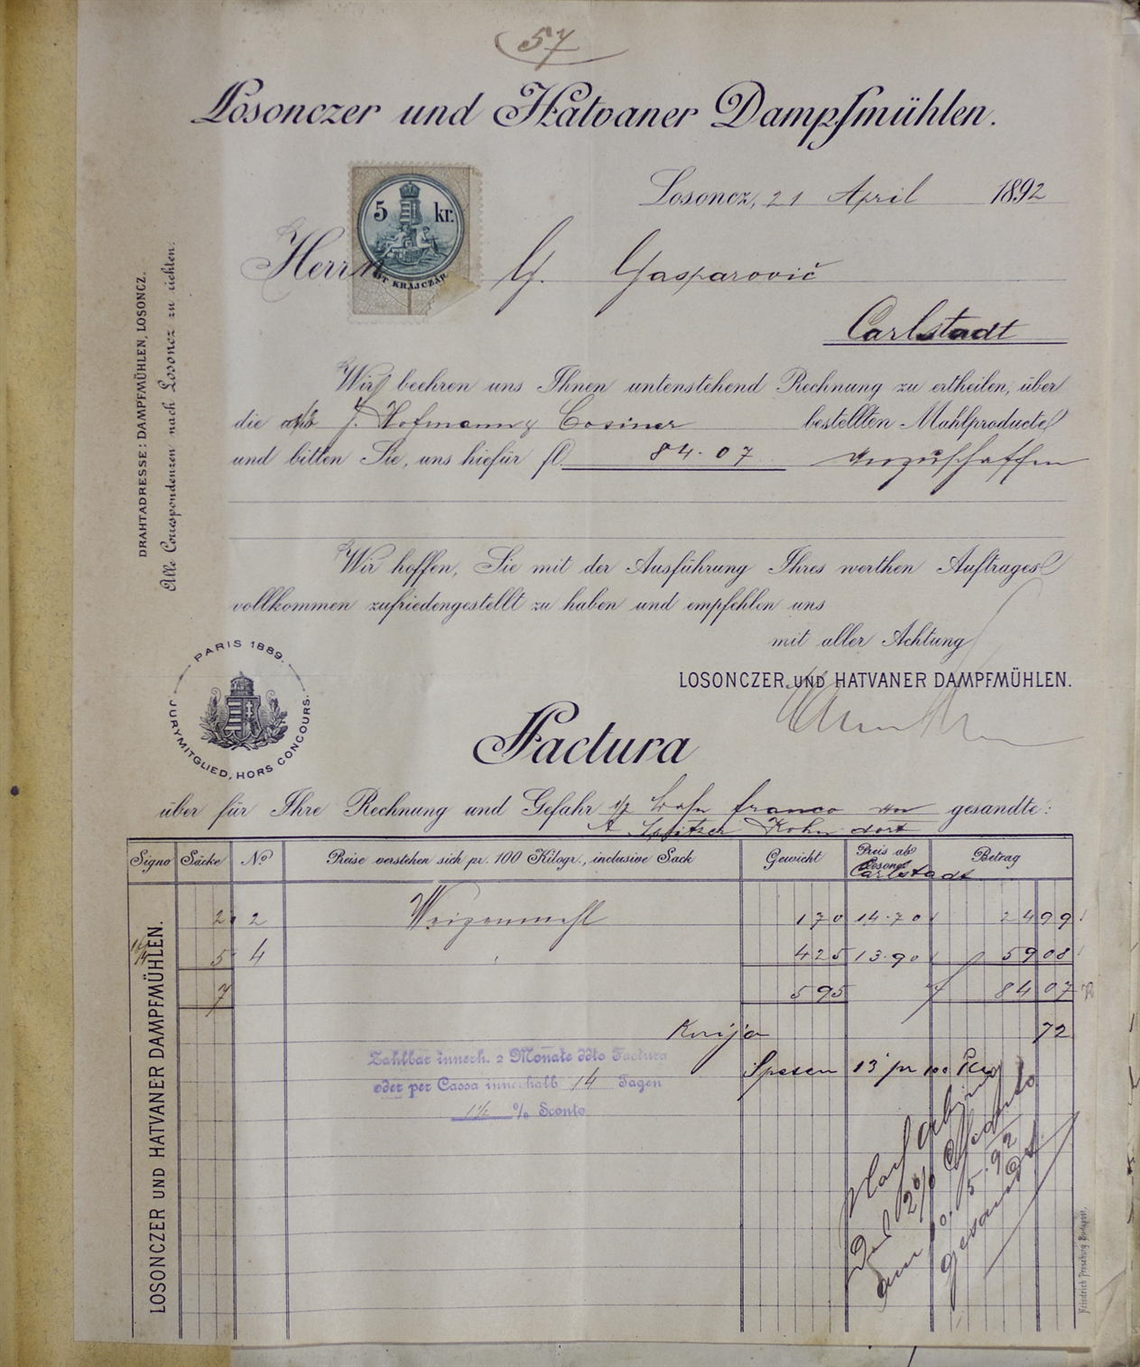 57
Losonczer und Hatvaner Dampfmühlen.
Losoncz, 21 April 1892
5 kr.
KRAJCZÁR
Herrn G. Gasparovič
Carlstadt
DRAHTADRESSE: DAMPFMÜHLEN, LOSONCZ.
Alle Correspondenzen nach Losoncz zu richten.
Wir beehren uns Ihnen untenstehend Rechnung zu ertheilen, über
die J. Hofmann & Cosiner bestellten Mahlproducte
und bitten Sie, uns hiefür fl. 84.07 anzuschaffen
Wir hoffen, Sie mit der Ausführung Ihres werthen Auftrages
vollkommen zufriedengestellt zu haben und empfehlen uns
mit aller Achtung
LOSONCZER UND HATVANER DAMPFMÜHLEN.
PARIS 1889.
JURYMITGLIED, HORS CONCOURS.
Factura
über für Ihre Rechnung und Gefahr p Bahn franco gesandte:
A Spitzer Kohn dort
Signo Säcke No Preise verstehen sich pr. 100 Kilogr., inclusive Sack Gewicht Preis ab Losoncz Betrag
Carlstadt
2 2 Weizenmehl 170 14.70 24 99
5 4 425 13.90 59 08
7 595 84 07
72
Spesen 13 pr 100 Ko
Zahlbar innerh. 2 Monate ddto Factura
oder per Cassa innerhalb 14 Tagen
1½ % Sconto
2%
10.5.92
gesandt
LOSONCZER UND HATVANER DAMPFMÜHLEN.
Friedrich Pressburg Budapest.